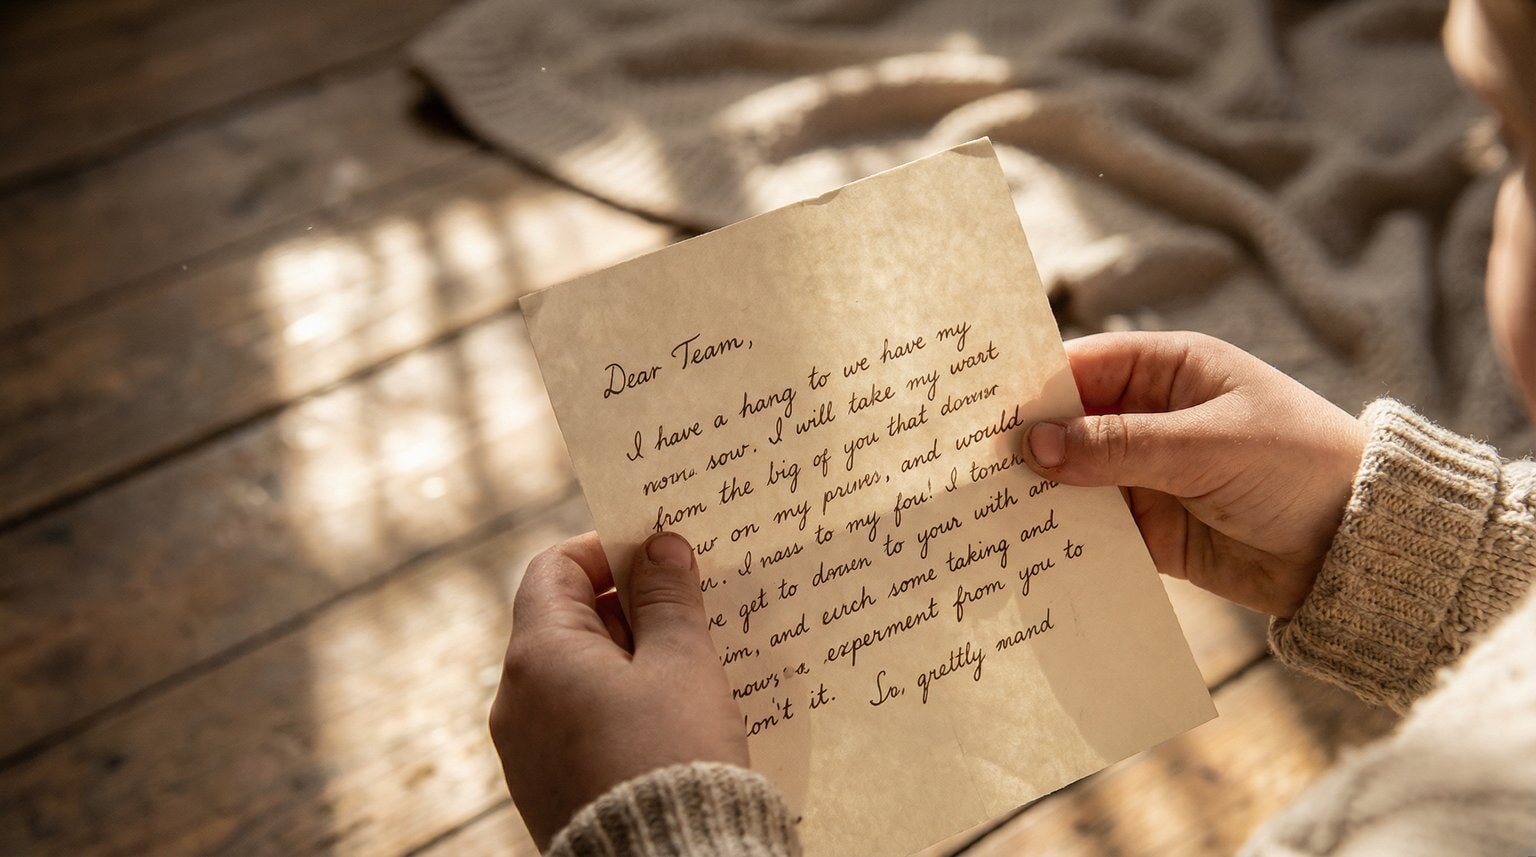 Dear Team,
I have a hang to we have my
sow. I will take my wart
from the big of you that
on my pruves, and would
I nass to my fou! I
get to dorsen to your with
and eurch some taking and
experment from you to
it. So, qrettly mand